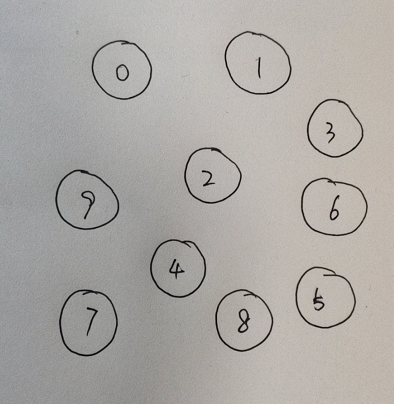 0 1
3
2
9 6
4
5
7 8